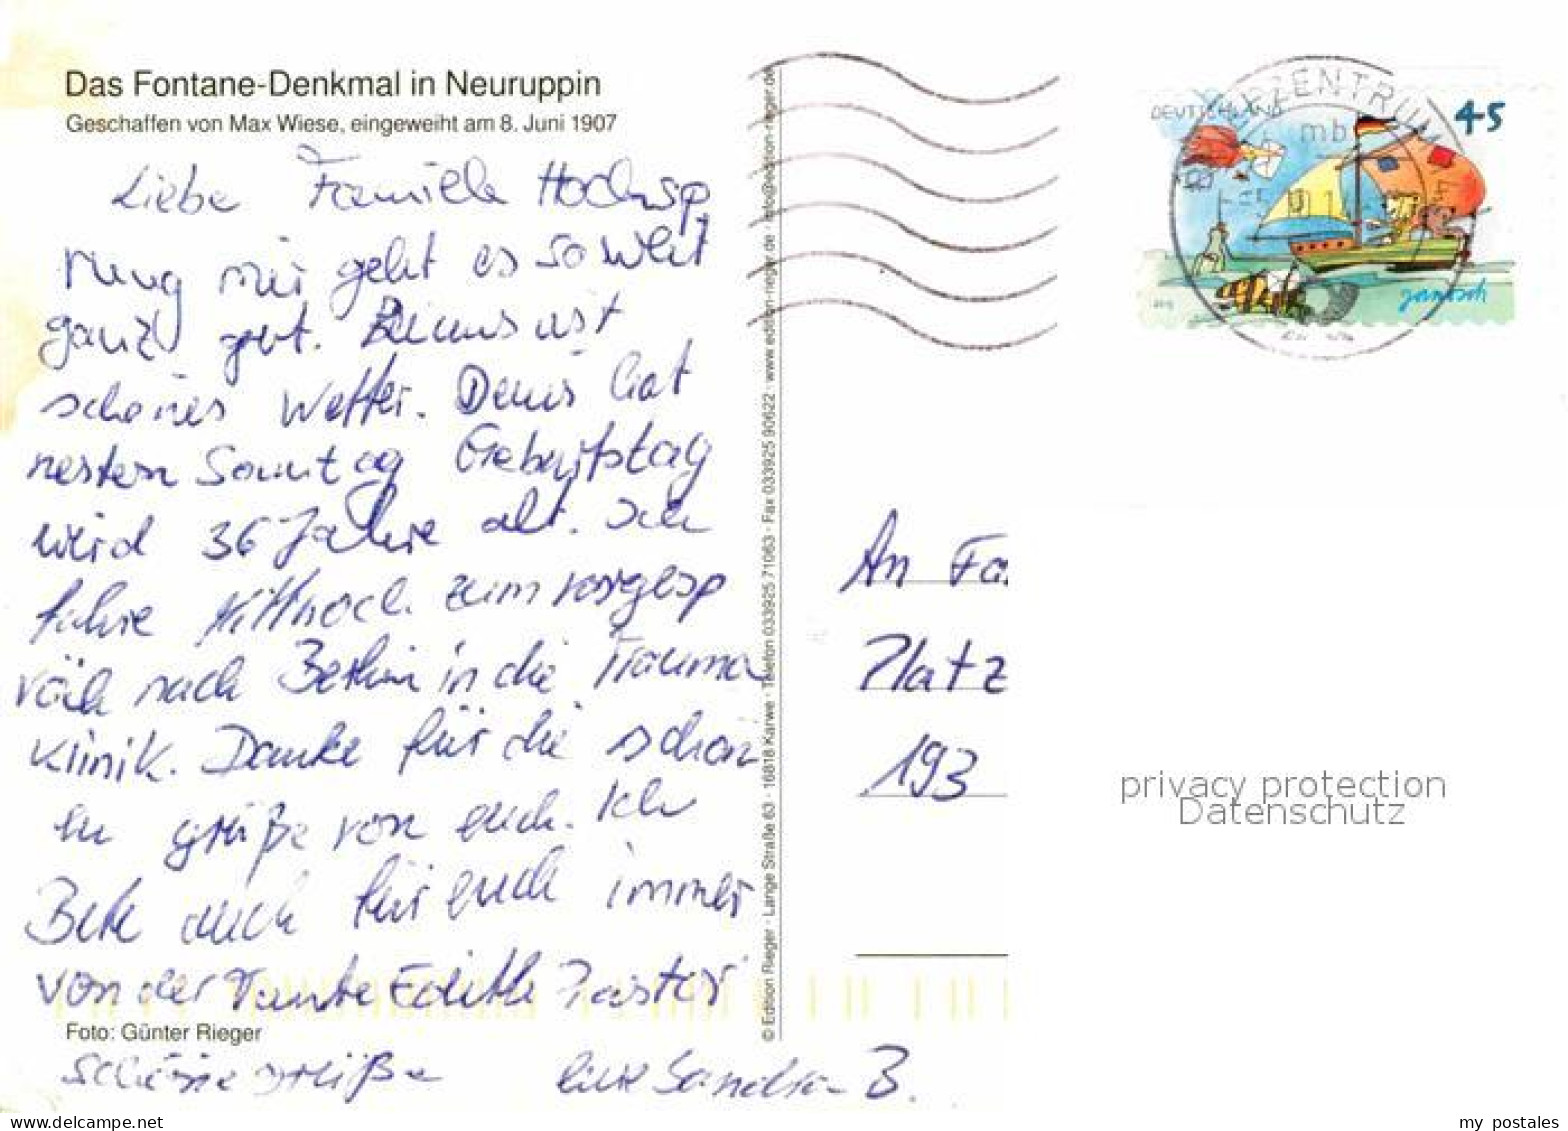 Das Fontane-Denkmal in Neuruppin
Geschaffen von Max Wiese, eingeweiht am 8. Juni 1907
Liebe Familie
mir geht es soweit
ganz gut. ist
schönes Wetter. Denis hat
Sonntag Geburtstag
wird 36 Jahre alt. Ich
fahre Mittwoch zum vorgesp
räch nach Berlin in die Trauma
Klinik. Danke für die schön
en grüße von euch. Ich
Bete auch für euch immer
von der Tante Edith
Foto: Günter Rieger
schöne grüße eure Sandra B.
© Edition Rieger · Lange Straße 63 · 16818 Karwe · Telefon 033925 71063 · Fax 033925 90622 · www.edition-rieger.de · info@edition-rieger.de
DEUTSCHLAND
45
janosch
BRIEFZENTRUM
mb
An Fa
Platz
193
privacy protection
Datenschutz
my postales